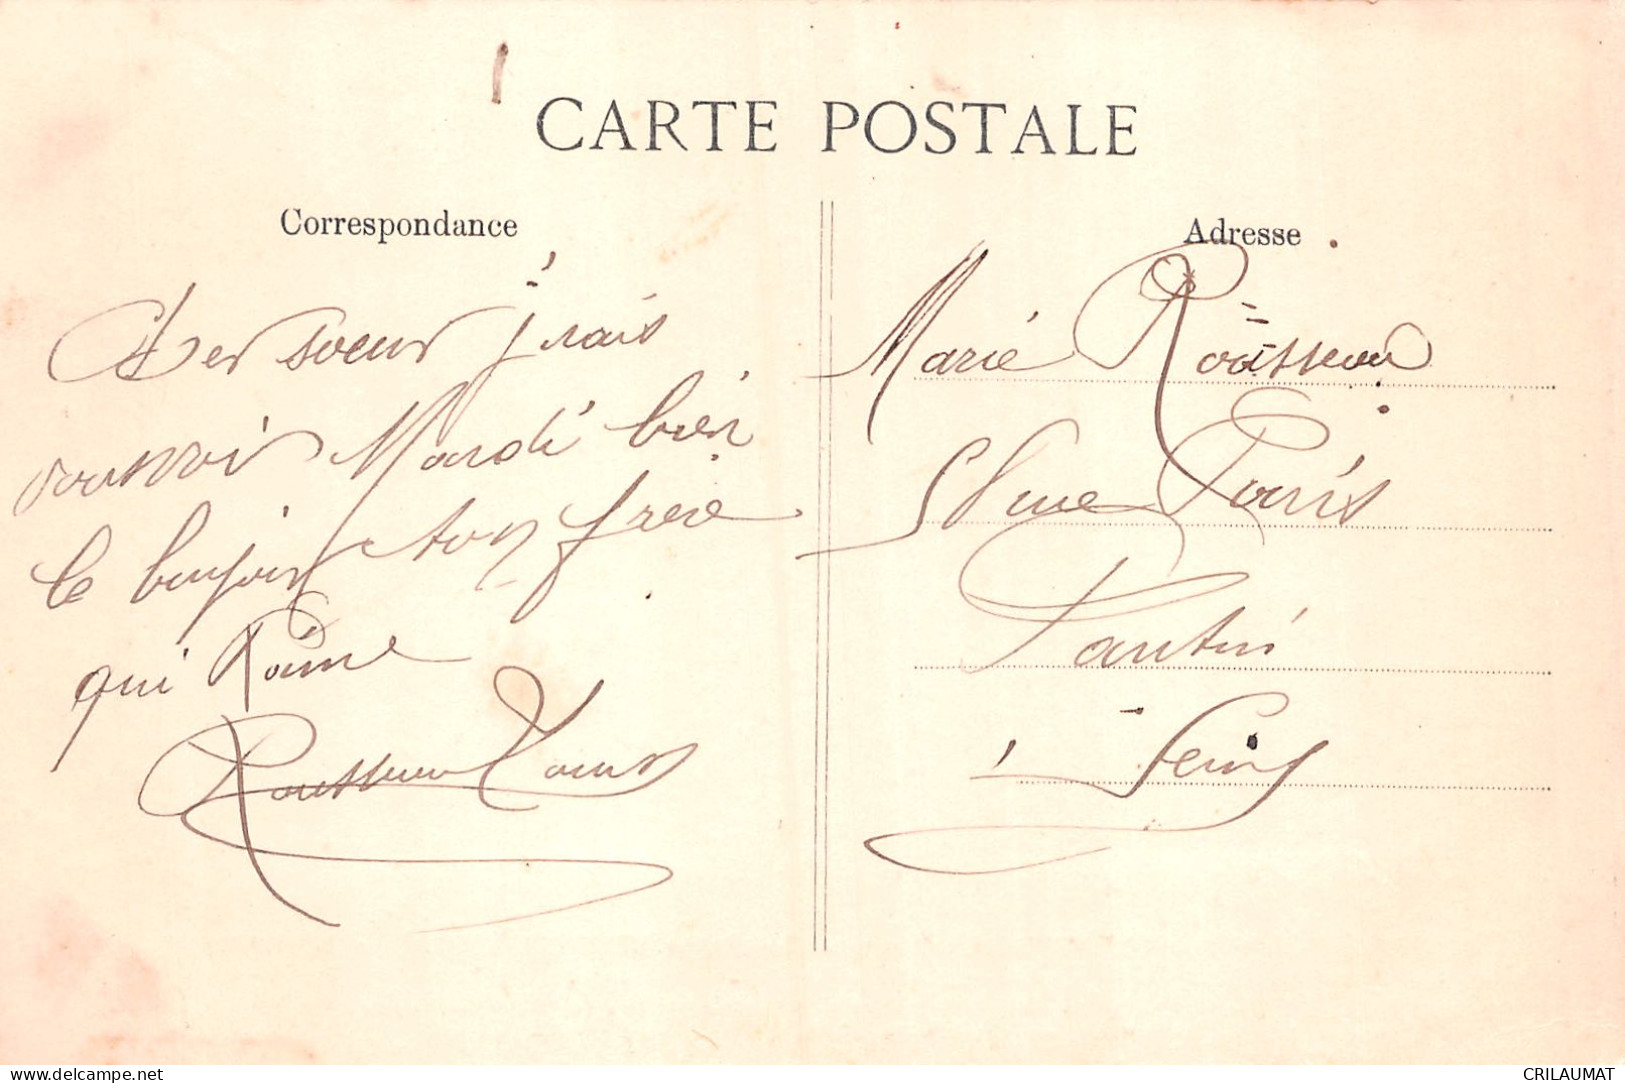 CARTE POSTALE
Correspondance
Cher soeur j'irais
vous voir Mardi bien
le bonjour ton frère
qui t'aime
Rousseau
Adresse
Marie Rousseau
58 rue Paris
Pantin
Seine
www.delcampe.net
CRILAUMAT